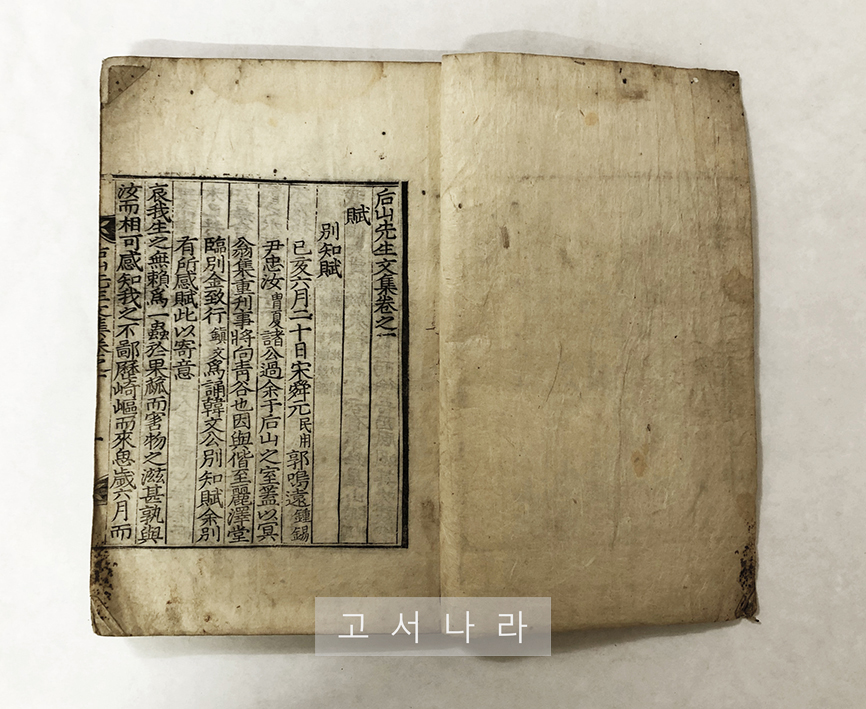 后山先生文集卷之一
賦
別知賦
已亥六月二十日宋舜元民用郭鳴遠鍾錫
尹忠汝胄夏諸公過余于后山之室蓋以冥
翁集重刊事將向靑谷也因與偕至麗澤堂
臨別金致行鎭文爲誦韓文公別知賦余別
有所感賦此以寄意
哀我生之無賴爲一蟲於果蓏而害物之滋甚孰與
汝而相可感知我之不鄙歷崎嶇而來息歲六月而
后山先生文集卷之一
고서나라